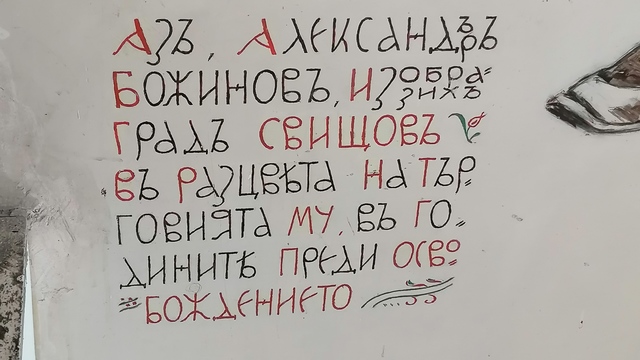 Азъ, Александъръ
Божиновъ, изобра=
зихъ
градъ Свищовъ
въ разцвѣта на тър=
говията му, въ го=
динитѣ преди осво=
бождението